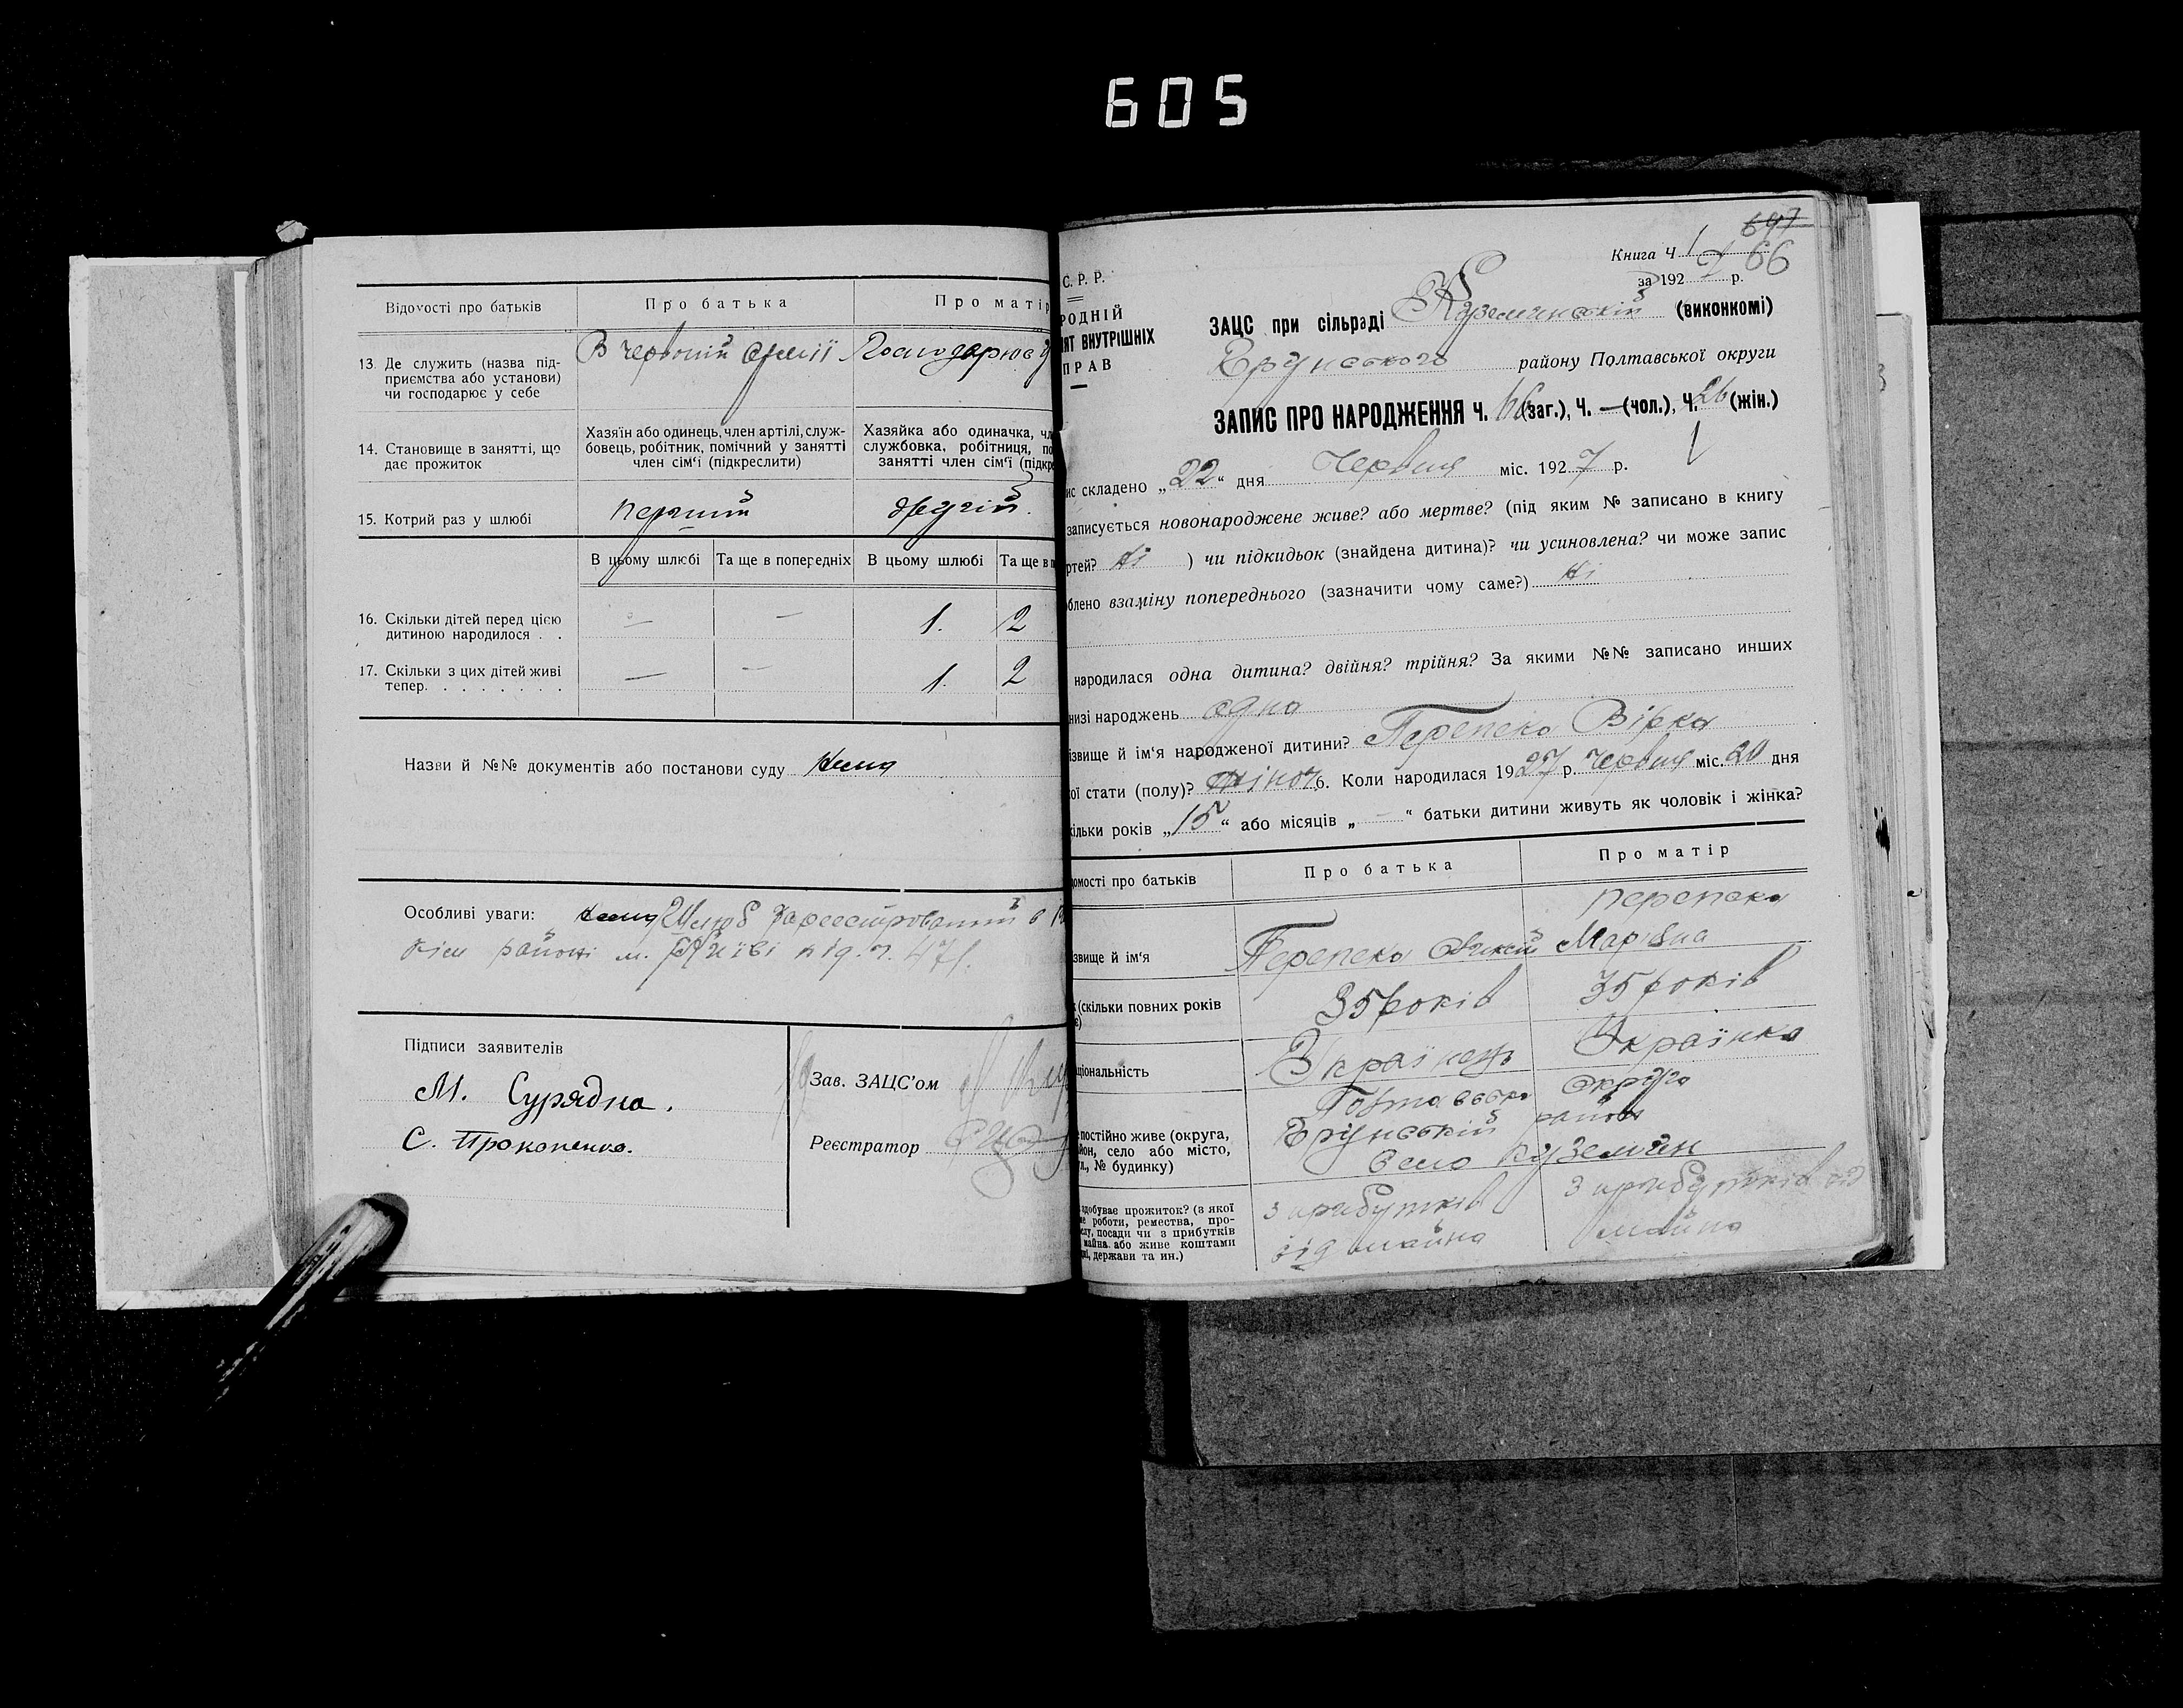 605
Відомості про батьків
Про батька
Про матір
13. Де служить (назва під-
приємства або установи)
чи господарює у себе
В Червоній Армії
Господарює у
14. Становище в занятті, що
дає прожиток
Хазяїн або одинець, член артілі, служ-
бовець, робітник, помічний у занятті
член сім'ї (підкреслити)
Хазяйка або одиначка, чл
службовка, робітниця, по
занятті член сім'ї (підкре
15. Котрий раз у шлюбі
перший
другій.
В цьому шлюбі
Та ще в попередніх
В цьому шлюбі
Та ще в п
16. Скільки дітей перед цією
дитиною народилося . .
— — 1. 2
17. Скільки з цих дітей живі
тепер. . . . . . . .
— — 1. 2
Назви й №№ документів або постанови суду нема
Особливі уваги: нема Шлюб зареєстрований в
районі м. Київі під ч. 471.
Підписи заявителів
М. Сурядна.
С. Прокопенко.
Зав. ЗАЦС'ом
Реєстратор
647
Книга Ч 1 66
за 192 7 р.
С. Р. Р.
РОДНІЙ
ІЯТ ВНУТРІШНІХ
ПРАВ
ЗАЦС при сільраді Куземинській (виконкомі)
Грунського району Полтавської округи
ЗАПИС ПРО НАРОДЖЕННЯ ч. 66 (заг.), Ч. — (чол.), Ч. 26 (жін.)
ис складено „22“ дня Червня міс. 1927 р.
записується новонароджене живе? або мертве? (під яким № записано в книгу
ртей? Ні ) чи підкидьок (знайдена дитина)? чи усиновлена? чи може запис
облено взаміну попереднього (зазначити чому саме?) Ні
народилася одна дитина? двійня? трійня? За якими №№ записано инших
низі народжень одна
ізвище й ім'я народженої дитини? Перепека Вірка
ої стати (полу)? жіноч 6. Коли народилася 1927 р. Червня міс. 20 дня
кільки років „15“ або місяців „—“ батьки дитини живуть як чоловік і жінка?
домості про батьків
Про батька
Про матір
звище й ім'я
Перепека
Перепека Марівна
(скільки повних років
е)
35 років
35 років
ціональність
Українець
Українка
е постійно живе (округа,
йон, село або місто,
л., № будинку)
Полтавська округа
Грунській район
село Куземин
здобуває прожиток? (з якої
ме роботи, ремества, про-
слу, посади чи з прибутків
майна або живе коштами
ні, держави та ин.)
з прибутків
від майна
з прибутків від
майна